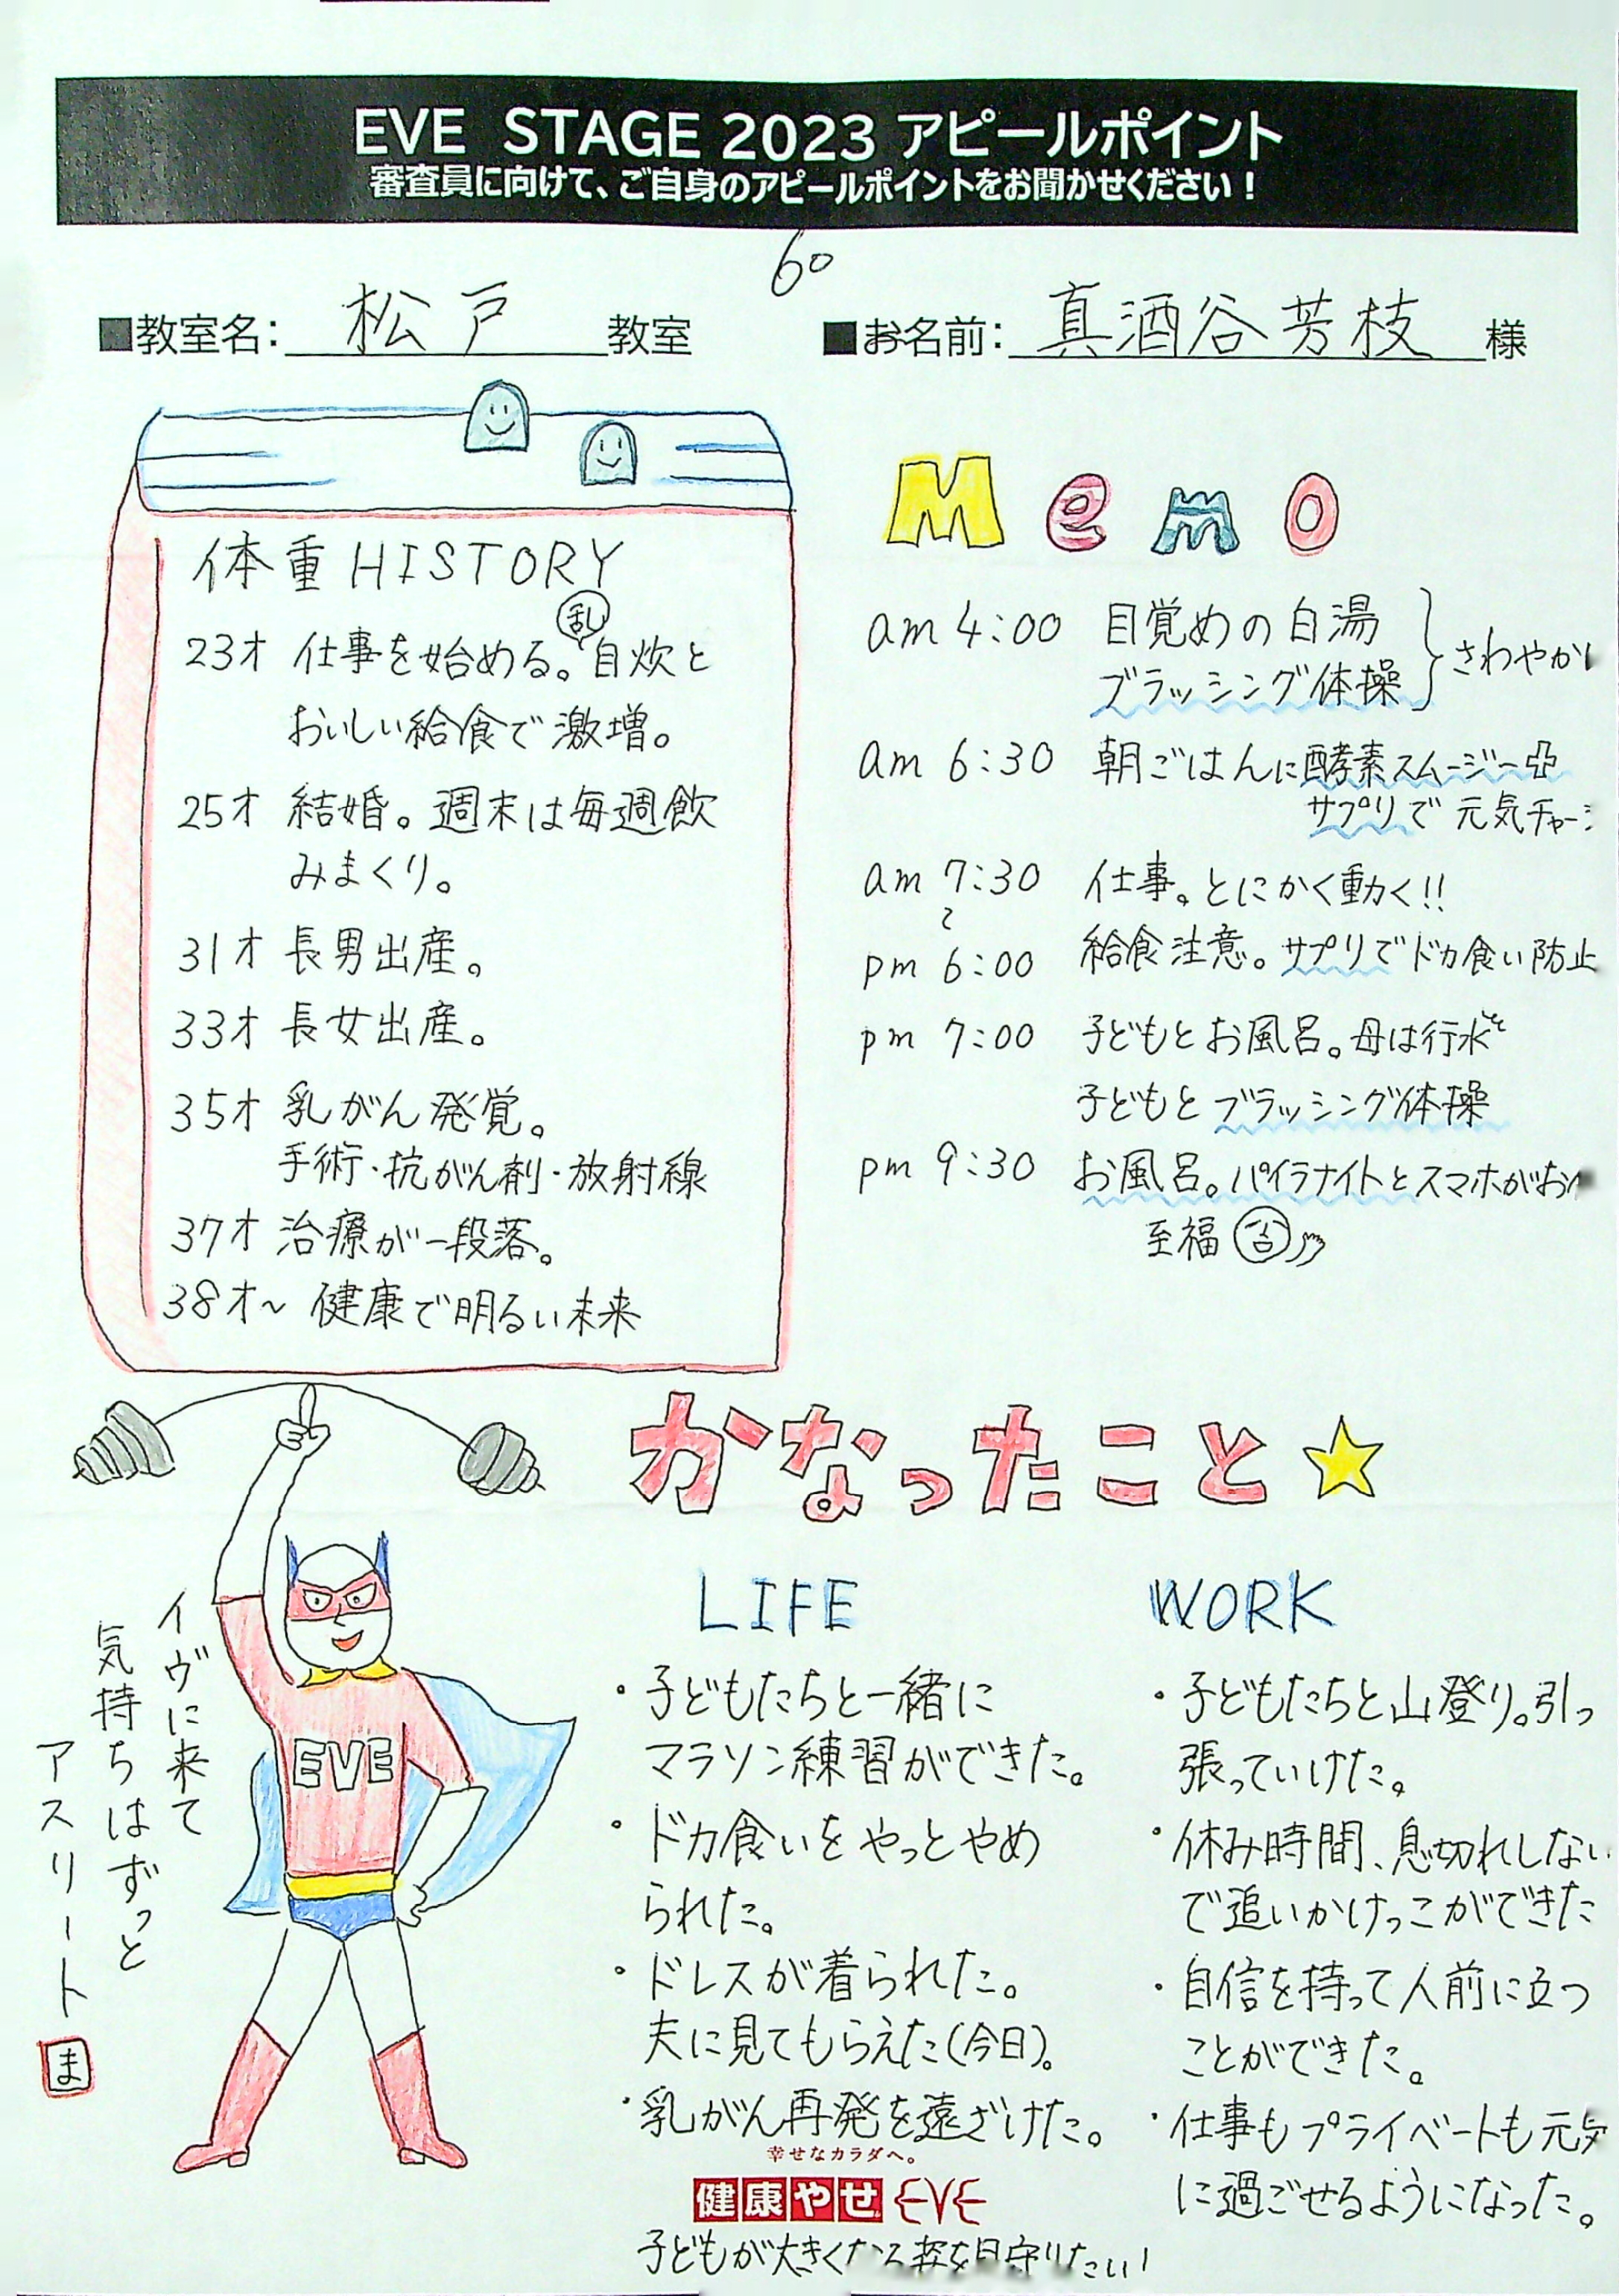 EVE STAGE 2023 アピールポイント
審査員に向けて、ご自身のアピールポイントをお聞かせください！
60
■教室名: 松戸 教室
■お名前: 真酒谷芳枝 様
体重HISTORY
23才 仕事を始める。乱自炊と
おいしい給食で激増。
25才 結婚。週末は毎週飲
みまくり。
31才 長男出産。
33才 長女出産。
35才 乳がん発覚。
手術・抗がん剤・放射線
37才 治療が一段落。
38才~ 健康で明るい未来
Memo
am 4:00 目覚めの白湯
ブラッシング体操
さわやか
am 6:30 朝ごはんに酵素スムージー
サプリで 元気チャー
am 7:30 仕事。とにかく動く!!
~
pm 6:00 給食注意。サプリでドカ食い防止
pm 7:00 子どもとお風呂。母は行水
子どもとブラッシング体操
pm 9:30 お風呂。パイラナイトとスマホがお
至福
かなったこと
LIFE
・子どもたちと一緒に
マラソン練習ができた。
・ドカ食いをやっとやめ
られた。
・ドレスが着られた。
夫に見てもらえた(今日)。
・乳がん再発を遠ざけた。
WORK
・子どもたちと山登り。引っ
張っていけた。
・休み時間、息切れしない
で追いかけっこができた
・自信を持って人前に立つ
ことができた。
・仕事もプライベートも元気
に過ごせるようになった。
EVE
イヴに来て
気持ちはずっと
アスリート
ま
幸せなカラダへ。
健康やせ EVE
子どもが大きくなる姿を見守りたい!